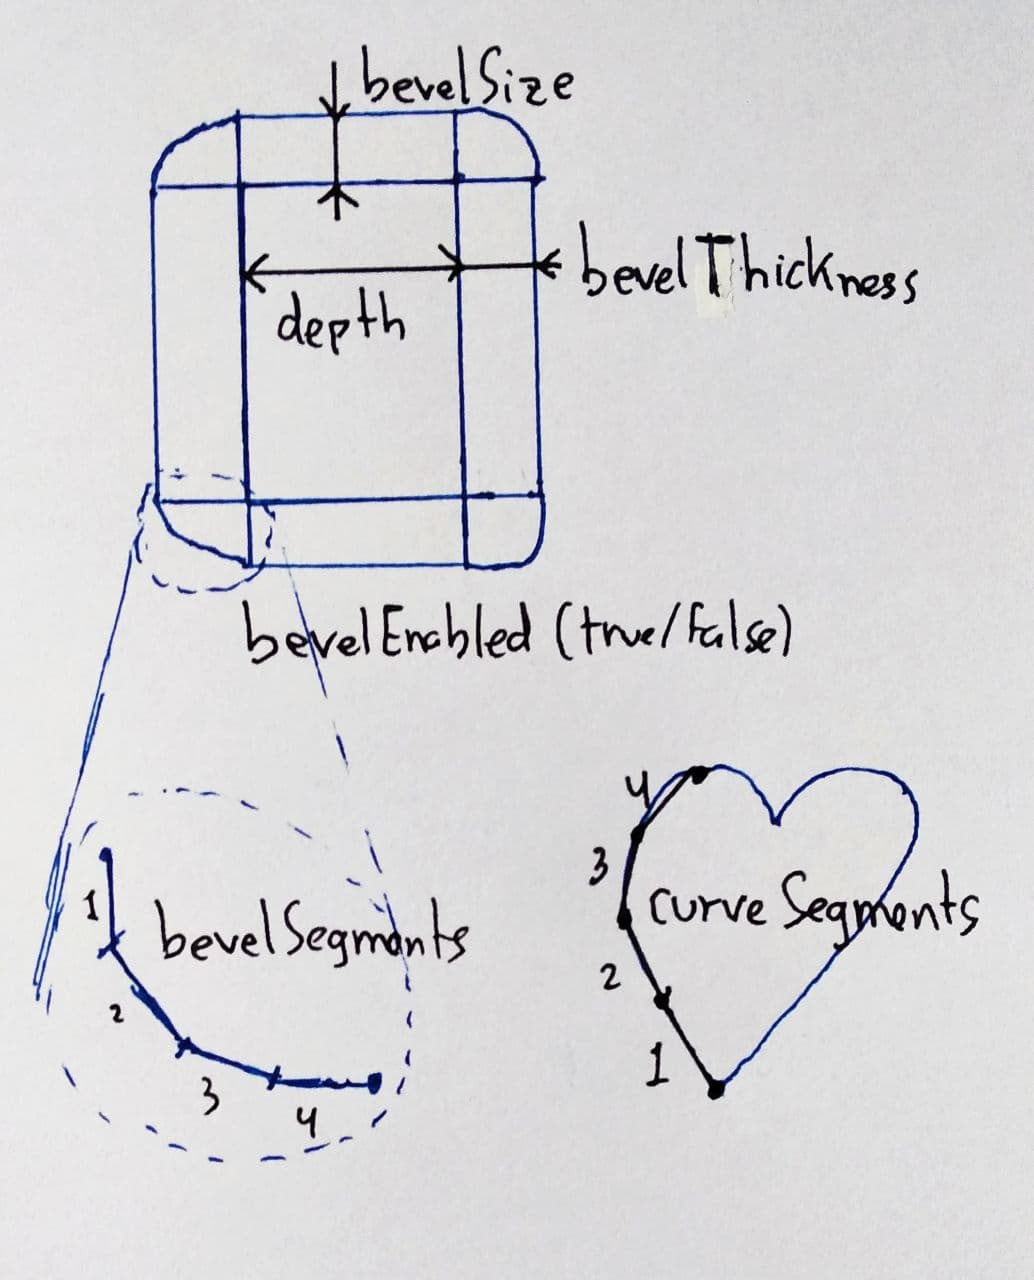 bevelSize
bevelThickness
depth
bevelEnabled (true/false)
4
3
1
bevelSegments
curve Segments
2
2
3
1
4